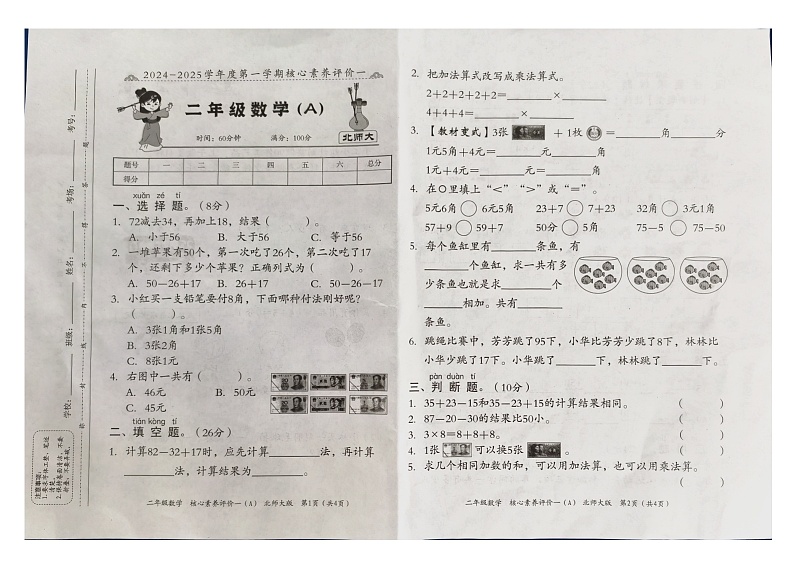 2024-2025学年度第一学期核心素养评价一
二年级数学(A)
时间:60分钟 满分:100分
北师大
题号 一 二 三 四 五 六 总分
得分
xuǎn zé tí
一、选择题。(8分)
1. 72减去34,再加上18,结果( )。
A. 小于56 B. 大于56 C. 等于56
2. 一堆苹果有50个,第一次吃了26个,第二次吃了17
个,还剩下多少个苹果?正确列式为( )。
A. 50-26+17 B. 26+17 C. 50-26-17
3. 小红买一支铅笔要付8角,下面哪种付法刚好呢?
( )。
A. 3张1角和1张5角
B. 3张2角
C. 8张1元
4. 右图中一共有( )。
A. 46元 B. 50元
C. 45元
tián kòng tí
二、填空题。(26分)
1. 计算82-32+17时,应先计算________法,再计算
________法,计算结果为________。
二年级数学 核心素养评价一(A) 北师大版 第1页(共4页)
学校: 班级: 姓名: 考场: 考号:
装 订 线 内 不 得 答 题
注意事项:
1.要求字体工整、笔迹
清楚。
2.保持卷面清洁,不要
折叠,不要弄破。
2. 把加法算式改写成乘法算式。
2+2+2+2+2=________×________
4+4+4=________×________
3. 【教材变式】3张 + 1枚 =________角________分
1元5角+4元=________元________角
1元+4元=________元=________角
4. 在○里填上“<”“>”或“=”。
5元6角○6元5角 23+7○7+23 32角○3元1角
57+9○59+7 50分○5角 75-5○75-50
5. 每个鱼缸里有________条鱼,有
________个鱼缸,求一共有多
少条鱼也就是求________个
________相加。共有________
条鱼。
6. 跳绳比赛中,芳芳跳了95下,小华比芳芳少跳了8下,林林比
小华少跳了17下。小华跳了________下,林林跳了________下。
pàn duàn tí
三、判断题。(10分)
1. 35+23-15和35-23+15的计算结果相同。 ( )
2. 87-20-30的结果比50小。 ( )
3. 3×8=8+8+8。 ( )
4. 1张 可以换5张 。 ( )
5. 求几个相同加数的和,可以用加法算,也可以用乘法算。
( )
二年级数学 核心素养评价一(A) 北师大版 第2页(共4页)